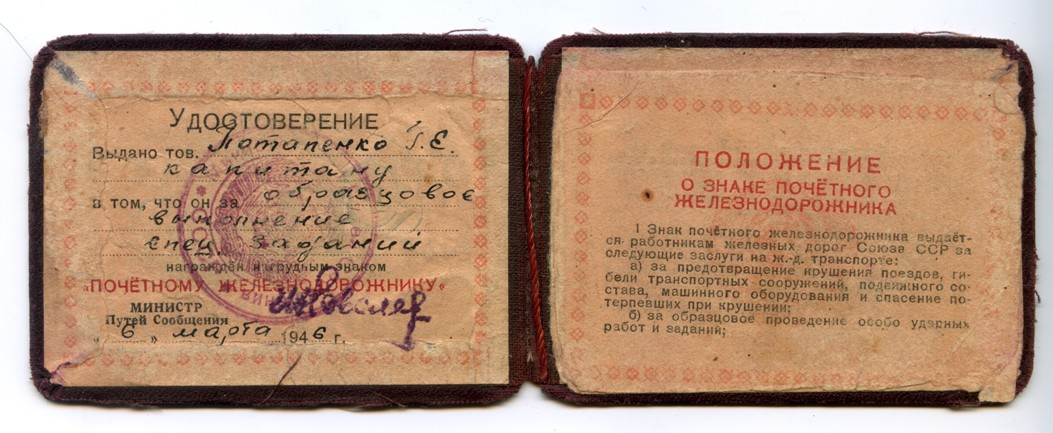 УДОСТОВЕРЕНИЕ
Выдано тов. Потапенко Г.Е.
капитану
в том, что он за образцовое
выполнение
спец. заданий
награждён нагрудным знаком
„ПОЧЁТНОМУ ЖЕЛЕЗНОДОРОЖНИКУ“
МИНИСТР
Путей Сообщения
„6“ марта 1946 г.
ПОЛОЖЕНИЕ
О ЗНАКЕ ПОЧЁТНОГО
ЖЕЛЕЗНОДОРОЖНИКА
1 Знак почётного железнодорожника выдаёт-
ся работникам железных дорог Союза ССР за
следующие заслуги на ж.-д. транспорте:
а) за предотвращение крушения поездов, ги-
бели транспортных сооружений, подвижного со-
става, машинного оборудования и спасение по-
терпевших при крушении;
б) за образцовое проведение особо ударных
работ и заданий;